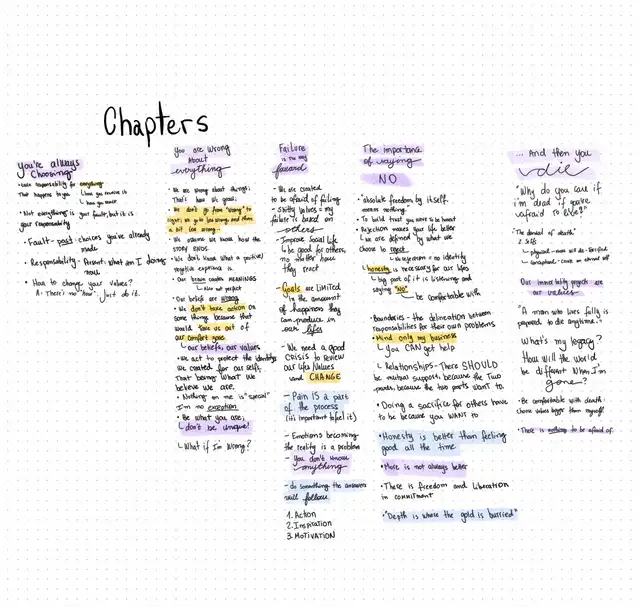 Chapters
You're always
Choosing
• Take responsibility for everything
That happens to you
↳ how you receive it
↳ how you react
• Not everything is your fault, but it is
your responsibility
• Fault - past choices you've already
made
• Responsibility - Present: what am I doing
now
• How to change your values?
A: There's no "how". Just do it.
You are Wrong
About
everything
• We are wrong about things.
That's how we grow.
• We don't go from "wrong" to
right; we go to less wrong and then
a bit less wrong.
• We assume we know how the
STORY ENDS.
• We don't know what a positive/
negative experience is.
• Our brain creates MEANINGS
↳ Are not perfect
• Our beliefs are wrong
• We don't take action on
some things because that
would take us out of
our comfort zone
↳ our beliefs, our values
• We act to protect the identity
we created for our self,
That being What we
believe we are.
• Nothing on me is "special"
I'm no exception.
• Be what you are;
↳ don't be unique!
↳ What if I'm Wrong?
Failure
is the way
forward
• We are created
to be afraid of failing
- Shitty values = my
failure is based on
others
- Improve Social Life
↳ be good for others,
no matter how
they react
- Goals are limited
in the amount
of happiness they
can produce in
our lifes
- We need a good
CRISIS to REVIEW
our life's Values
and CHANGE
- Pain IS a part
of the process
(it's important to feel it)
- Emotions becoming
the reality is a problem
- You don't know
anything
- do something the answers
will follow
1. Action
2. Inspiration
3. MOTIVATION
The importance
of saying
NO
• absolute freedom by itself
means nothing.
• To build trust you have to be honest
• Rejection makes your life better
↳ We are defined by what we
choose to reject
↳ No rejection = no identity
↳ honesty is necessary for our lifes
↳ big part of it is listening and
saying "NO"
↳ be comfortable with
• Boundaries - the delineation between two
responsibilities for their own problems
• Mind only my business
↳ You CAN get help
↳ Relationships - There SHOULD
be mutual support, because the two
parts want to.
• Doing a sacrifice for others have
to be because you WANT to
• Honesty is better than feeling
good all the time
• More is not always better
• There is freedom and liberation
in commitment
• "Depth is where the gold is burried"
... And then you
die
"Why do you care if
I'm dead if you're
afraid to live?"
"The denial of death"
2. Selfs
Our immortality projects are
our values.
"A man who lives fully is
prepared to die anytime."
What's my legacy?
How will the world
be different When I'm
gone?
• Be comfortable with death:
choose values bigger than myself
• There is nothing to be afraid of.